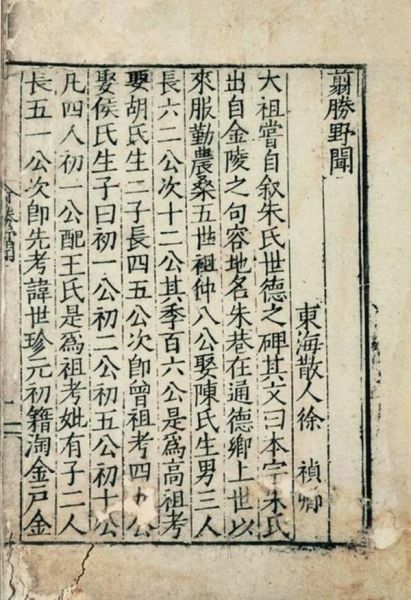 翦勝野聞
東海散人徐 禎卿
大祖嘗自叙朱氏世德之碑其文曰本宗朱氏
出自金陵之句容地名朱巷在通德鄉上世以
來服勤農桑五世祖仲八公娶陳氏生男三人
長六二公次十二公其季百六公是爲高祖考
娶胡氏生二子長四五公次卽曾祖考四九公
娶侯氏生子曰初一公初二公初五公初十公
凡四人初一公配王氏是爲祖考妣有子二人
長五一公次卽先考諱世珍元初籍淘金戸金